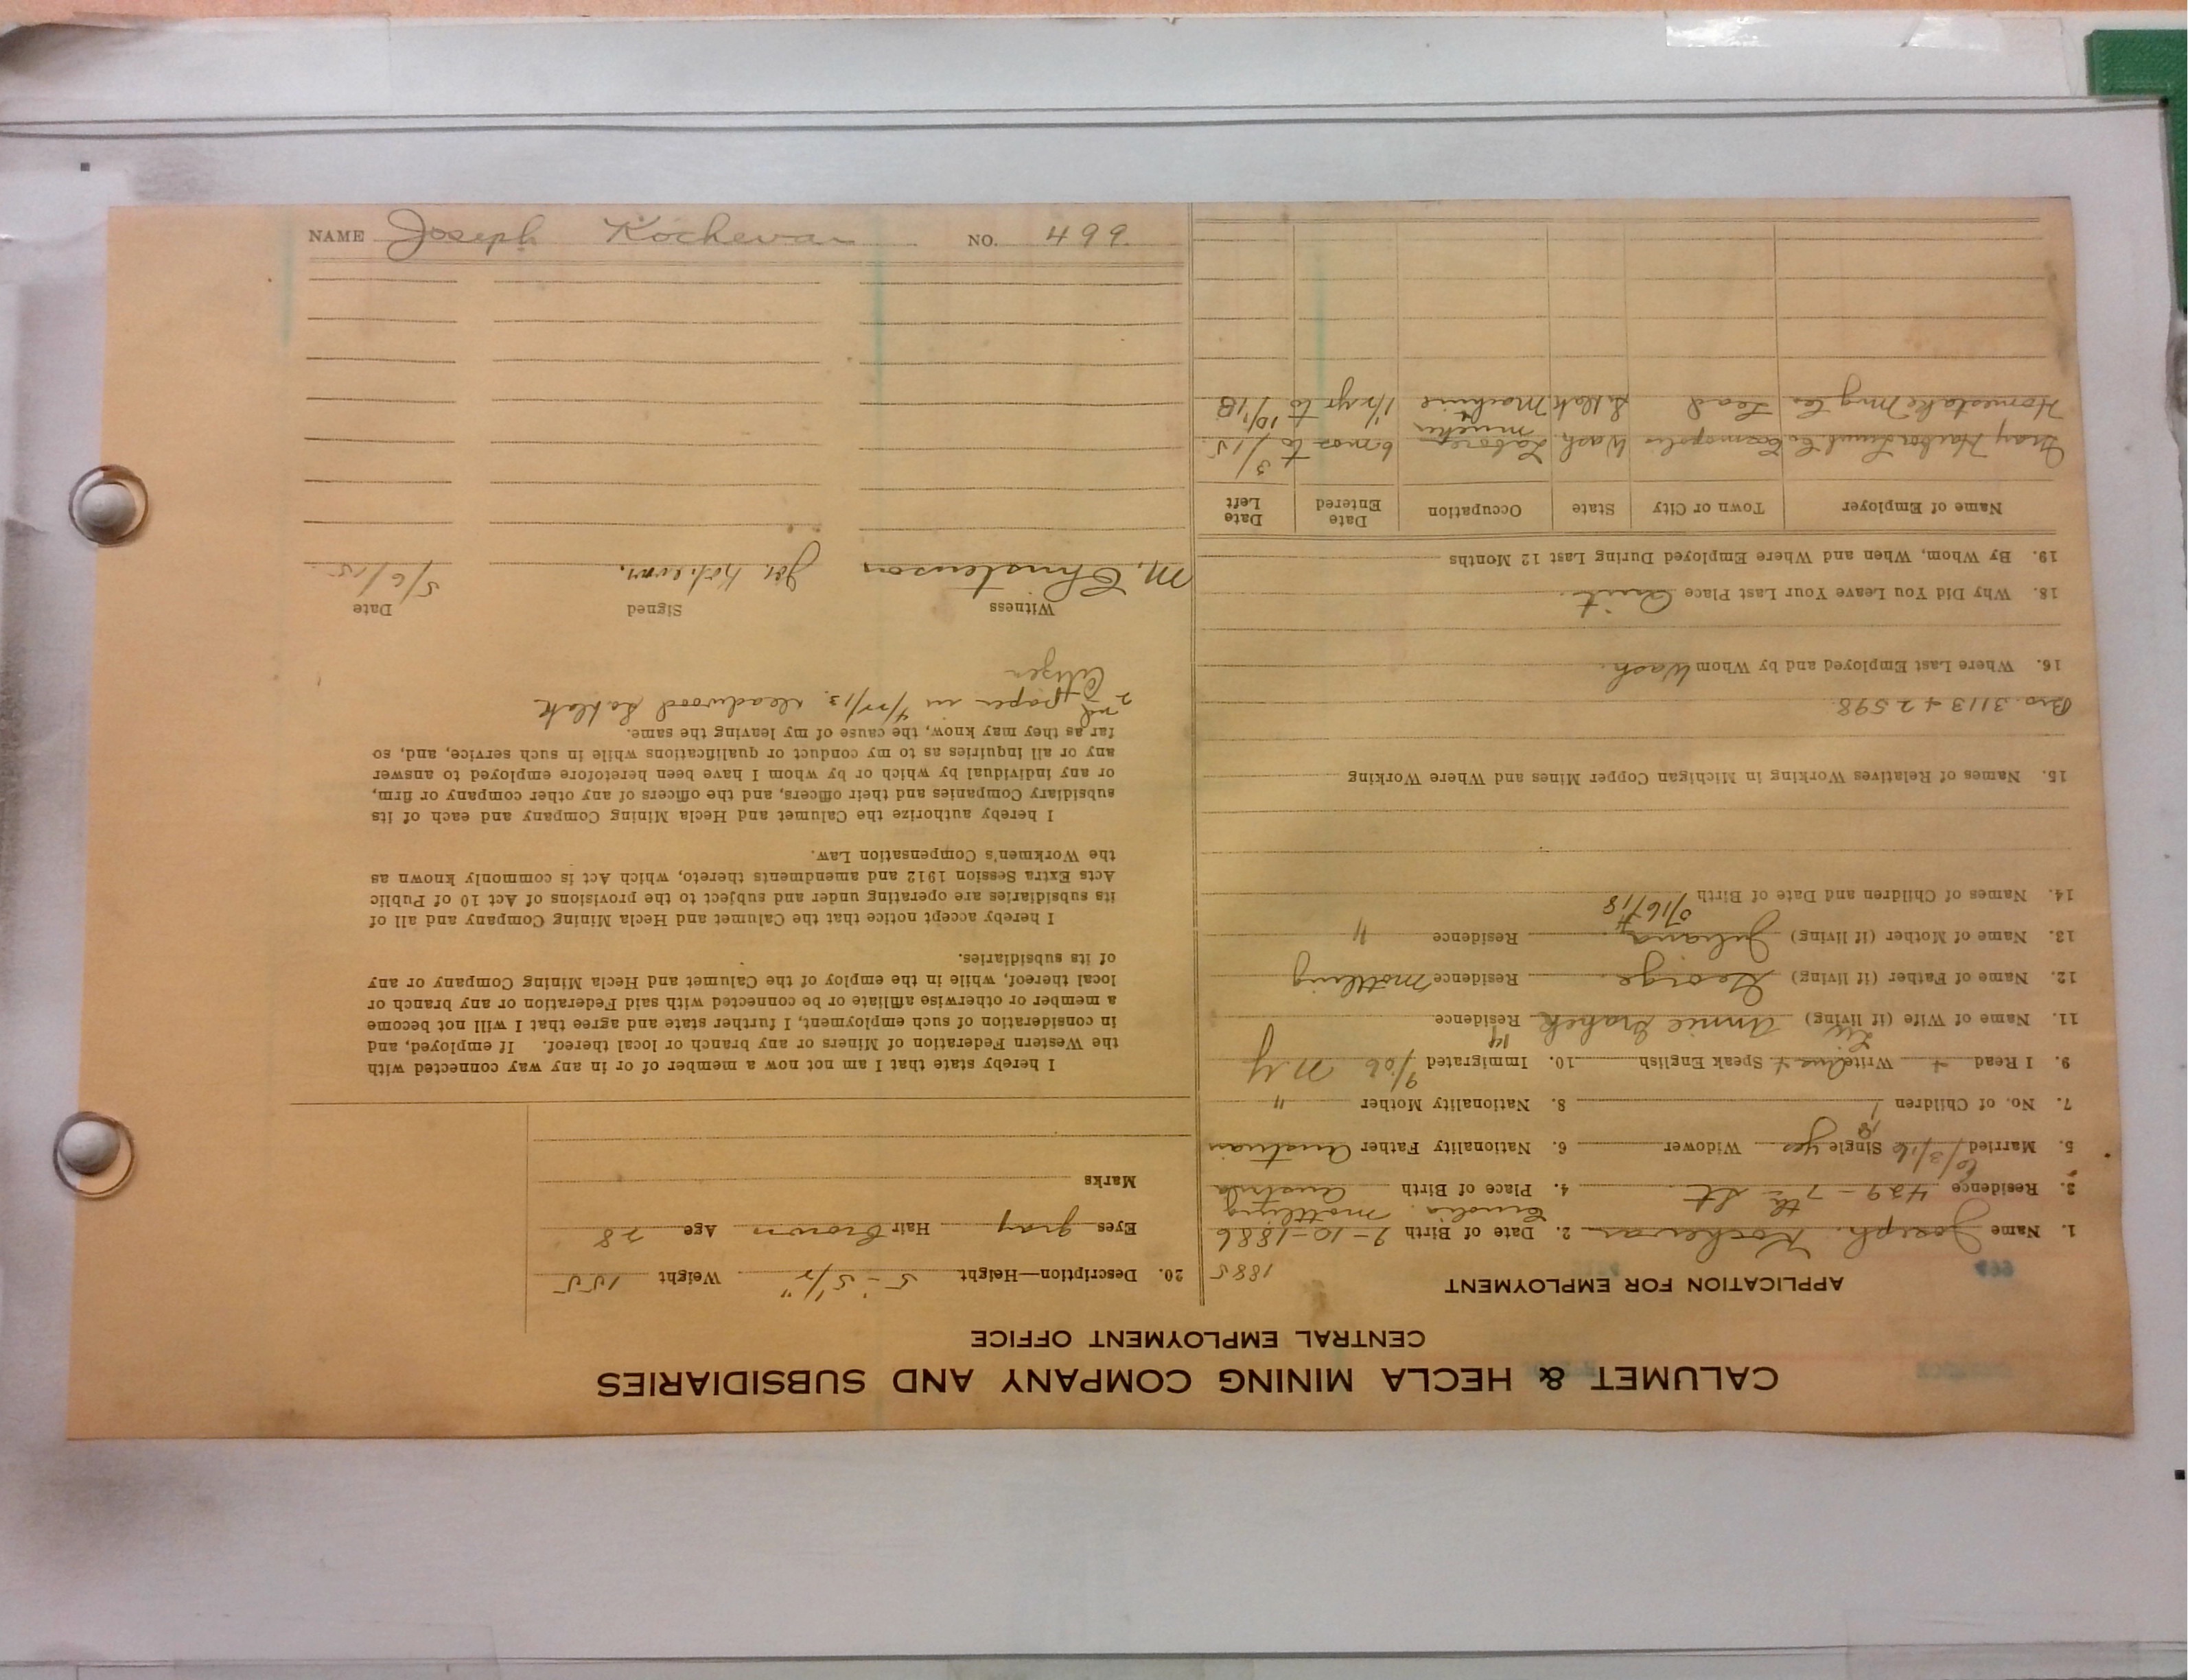 CALUMET & HECLA MINING COMPANY AND SUBSIDIARIES
CENTRAL EMPLOYMENT OFFICE
APPLICATION FOR EMPLOYMENT
1885
1. Name Joseph Kochevar 2. Date of Birth 9-10-1886
mottling
3. Residence 429-7th St 4. Place of Birth Austria
5. Married 6/3/16 Single yes Widower 6. Nationality Father Austrian
7. No. of Children 1 8. Nationality Mother "
9. I Read + Write Speak English 10. Immigrated 9/06 N.Y
11. Name of Wife (if living) Annie Residence
12. Name of Father (if living) George Residence Mottling
13. Name of Mother (if living) Juliana Residence "
14. Names of Children and Date of Birth
15. Names of Relatives Working in Michigan Copper Mines and Where Working
Bro. 3113 + 2598
16. Where Last Employed and by Whom Wash.
18. Why Did You Leave Your Last Place Quit.
19. By Whom, When and Where Employed During Last 12 Months
Name of Employer Town or City State Occupation Date Entered Date Left
Gray Harbor Lumb Co Cosmopolis Wash. Laborer 6 mos to 3/15
Homestake Mng Co Lead S. Dak Machine 1½ yr to
20. Description—Height 5-5½" Weight 155
Eyes gray Hair Brown Age 28
Marks
I hereby state that I am not now a member of or in any way connected with
the Western Federation of Miners or any branch or local thereof. If employed, and
in consideration of such employment, I further state and agree that I will not become
a member or otherwise affiliate or be connected with said Federation or any branch or
local thereof, while in the employ of the Calumet and Hecla Mining Company or any
of its subsidiaries.
I hereby accept notice that the Calumet and Hecla Mining Company and all of
its subsidiaries are operating under and subject to the provisions of Act 10 of Public
Acts Extra Session 1912 and amendments thereto, which Act is commonly known as
the Workmen's Compensation Law.
I hereby authorize the Calumet and Hecla Mining Company and each of its
subsidiary Companies and their officers, and the officers of any other company or firm,
or any individual by which or by whom I have been heretofore employed to answer
any or all inquiries as to my conduct or qualifications while in such service, and, so
far as they may know, the cause of my leaving the same.
2nd paper in Deadwood So Dak
Citizen
Witness Signed Date
M. Christenson Jos. 5/6/15
NAME Joseph Kochevar NO. 499